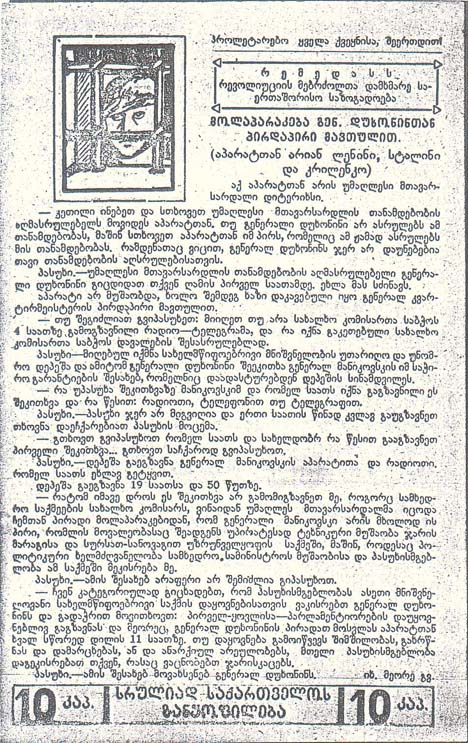 პროლეტარებო ყველა ქვეყნისა, შეერთდით!
რ ე მ ე დ ა ს ს
რევოლუციის მებრძოლთა დამხმარე სა-
ერთაშორისო საზოგადოება
მოლაპარაკება გენ. დუხონინთან
პირდაპირი მავთულით.
(აპარატთან არიან ლენინი, სტალინი
და კრილენკო)
აქ აპარატთან არის უმაღლესი მთავარ-
სარდალი დიტერიხსი.
— კეთილი ინებეთ და სთხოვეთ უმაღლესი მთავარსარდლის თანამდებობის
აღმასრულებელს მოვიდეს აპარატთან. თუ გენერალი დუხონინი არ ასრულებს ამ
თანამდებობას, მაშინ სთხოვეთ აპარატთან იმ პირს, რომელიც ამ ჟამად ასრულებს
მის თანამდებობას. რამდენათაც ვიცით, გენერალ დუხონინს ჯერ არ დაუნებებია
თავი თანამდებობის აღსრულებისათვის.
პასუხი.—უმაღლესი მთავარსარდლის თანამდებობის აღმასრულებელი გენერა-
ლი დუხონინი გიცდიდათ თქვენ ღამის პირველ საათამდე. ეხლა მას სძინავს.
აპარატი არ მუშაობდა, ხოლო შემდეგ ხაზი დაკავებული იყო გენერალ კვარ-
ტირმეისტერის პირდაპირ მავთულით,
— თუ შეგიძლიათ გვიპასუხეთ: მიიღეთ თუ არა სახალხო კომისართა საბჭოს
4 საათზე გამოგზავნილი რადიო—ტელეგრამა, და რა იქნა გაკეთებული სახალხო
კომისართა საბჭოს დავალების შესასრულებლად.
პასუხი—მიღებულ იქმნა სახელმწიფოებრივი მნიშვნელობის უთარიღო და უნომ-
რო დეპეშა და ამიტომ გენერალი დუხონინი შეეკითხა გენერალ მანიკოვსკის იმ საჭი-
რო გარანტიების შესახებ, რომელნიც დაადასტურებდენ დეპეშის სინამდვილეს.
— რა უპასუხა შეკითხვაზე მანიკოვსკიმ და რომელ საათს იქნა გაგზავნილი ეს
შეკითხვა და რა წესით რადიოთი, ტელეფონით თუ ტელეგრაფით.
პასუხი.—პასუხი ჯერ არ მიგვიღია და ერთი საათის წინად კვლავ გაუგზავნეთ
თხოვნა დაეჩქარებიათ პასუხის მოცემა.
— გთხოვთ გვიპასუხოთ რომელ საათს და სახელდობრ რა წესით გააგზავნეთ
პირველი შეკითხვა... გთხოვთ საჩქაროდ გვიპასუხოთ.
პასუხი.—დეპეშა გაეგზავნა გენერალ მანიკოვსკის აპარატითა და რადიოთი.
რომელ საათს ეხლავ გეტყვით.
დეპეშა გაეგზავნა 19 საათსა და 50 წუთზე.
— რატომ იმავე დროს ეს შეკითხვა არ გამომიგზავნეთ მე, როგორც სამხედ-
რო საქმეების სახალხო კომისარს, ვინაიდან უმაღლეს მთავარსარდალმა იცოდა
ჩემთან პირადი მოლაპარაკებიდან, რომ გენერალი მანიკოვსკი არის მხოლოდ ის
პირი, რომლის მოვალეობასაც შეადგენს უპირატესად ტექნიკური მუშაობა ჯარის
მარაგისა და სურსათ-სანოვაგით უზრუნველყოფის საქმეში, მაშინ, როდესაც პო-
ლიტიკური ხელმძღვანელობა სამხედრო სამინისტროს მუშაობისა და პასუხისმგებ-
ლობა ამ საქმეში მეკისრება მე.
პასუხი.—ამის შესახებ არაფერი არ შემიძლია გიპასუხოთ.
— ჩვენ კატეგორიულად გიცხადებთ, რომ პასუხისმგებლობას ასეთი მნიშვნე-
ლოვანი სახელმწიფოებრივი საქმის დაყოვნებისათვის ვაკისრებთ გენერალ დუხო-
ნინს და გადაჭრით მოვითხოვთ: პირველ-ყოვლისა—პარლამენტიორების დაუყოვ-
ნებლივ გაგზავნას და მეორეც, გენერალ დუხონინის პირადათ მოსვლას აპარატთან
ხვალ სწორედ დილის 11 საათზე. თუ დაყოვნება გამოიწვევს შიმშილობას, გახრწ-
ნას და დამარცხებას, ან და ანარქიულ არეულობებს, მთელი პასუხისმგებლობა
დაგეკისრებათ თქვენ, რასაც ვაცნობებთ ჯარისკაცებს.
პასუხი.—ამის შესახებ მოვახსენებ გენერალ დუხონინს. იხ. მეორე გვ.
10 კაპ. სრულიად საქართველოს
განყოფილება 10 კაპ.